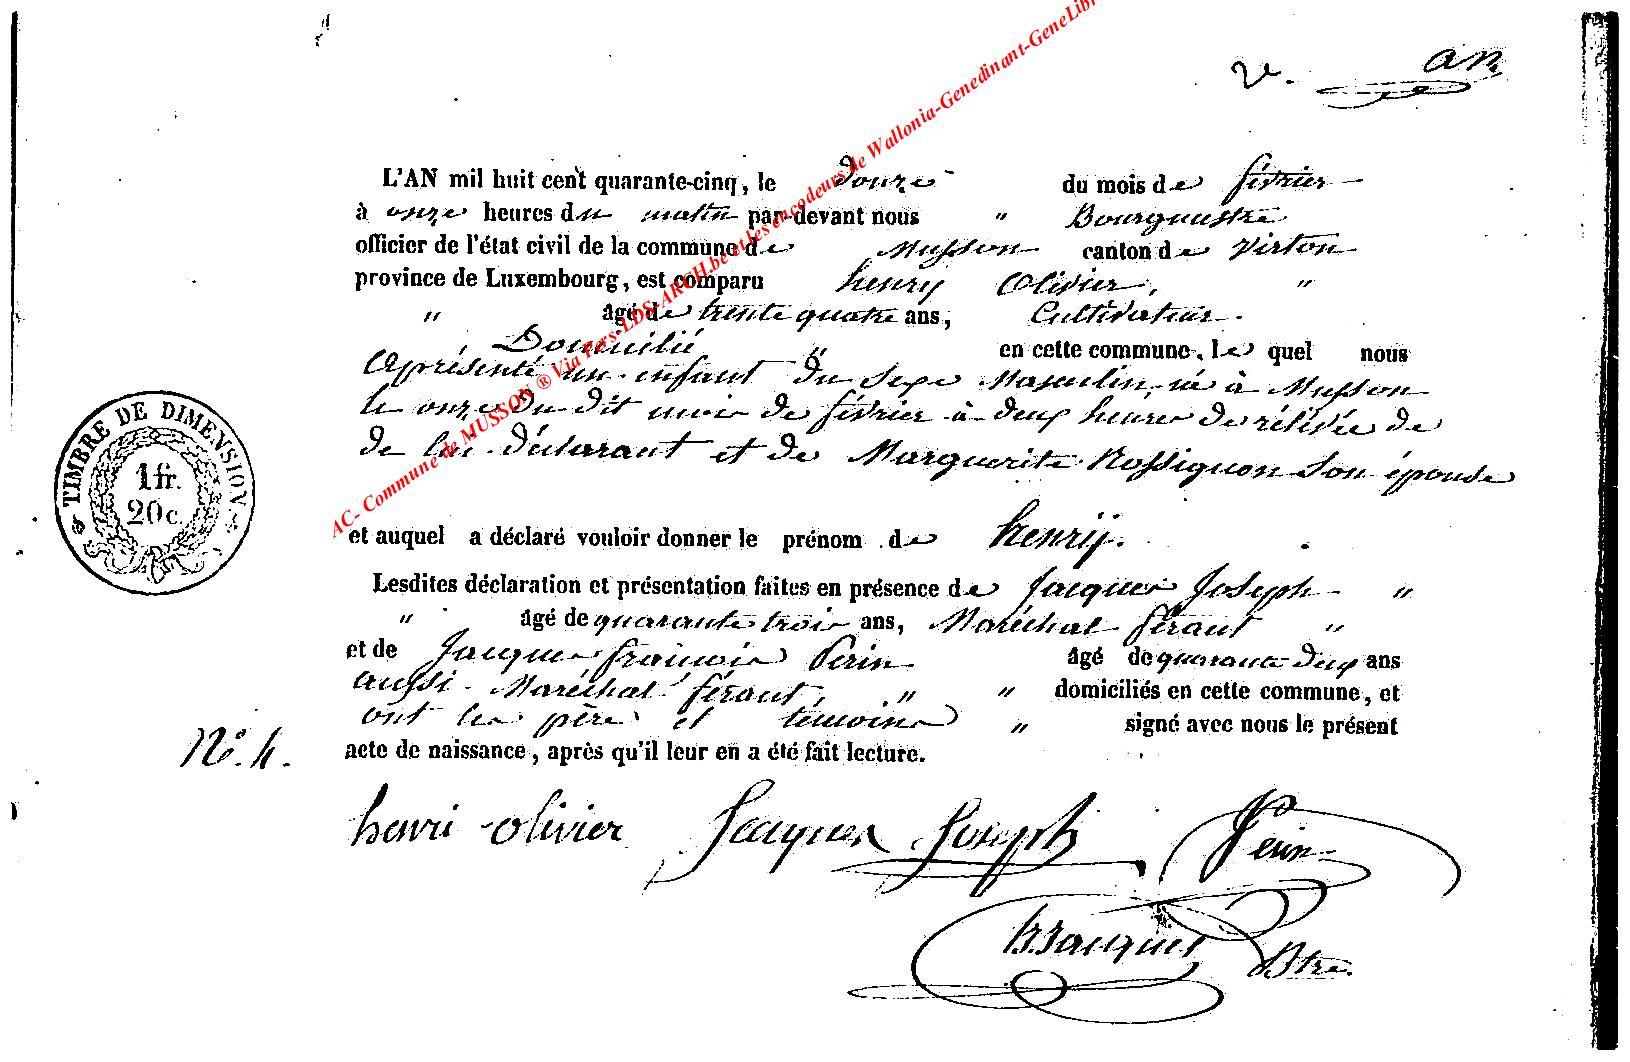 2e. an
L'AN mil huit cent quarante-cinq, le douze du mois de février
à onze heures du matin par devant nous " Bourgmestre
officier de l'état civil de la commune de Musson canton de Virton
province de Luxembourg, est comparu henry Olivier, "
" âgé de trente quatre ans, Cultivateur.
Domicilié " en cette commune, le quel nous
a présenté un enfant du sexe Masculin, né à Musson
le onze du dit mois de février à deux heures de rélévée de
de lui déclarant et de Marguerite Rossignon son épouse
et auquel a déclaré vouloir donner le prénom de henrÿ.
Lesdites déclaration et présentation faites en présence de Jacques Joseph "
" âgé de quarante trois ans, Maréchal férant "
et de Jacques françois Perin âgé de quarante deux ans
aussi Maréchal férant, " " domiciliés en cette commune, et
ont les père et témoins " signé avec nous le présent
acte de naissance, après qu'il leur en a été fait lecture.
N°. 4.
henri olivier Jacques Joseph Perin
Btre.
TIMBRE DE DIMENSION
1 fr.
20 c.
AC- Commune de MUSSON ® Via Pers-LDS-ARCH.be et les encodeurs de Wallonia-Genedinant-GeneLibr